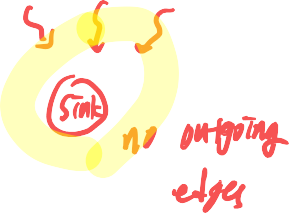 Sink
no outgoing
edges